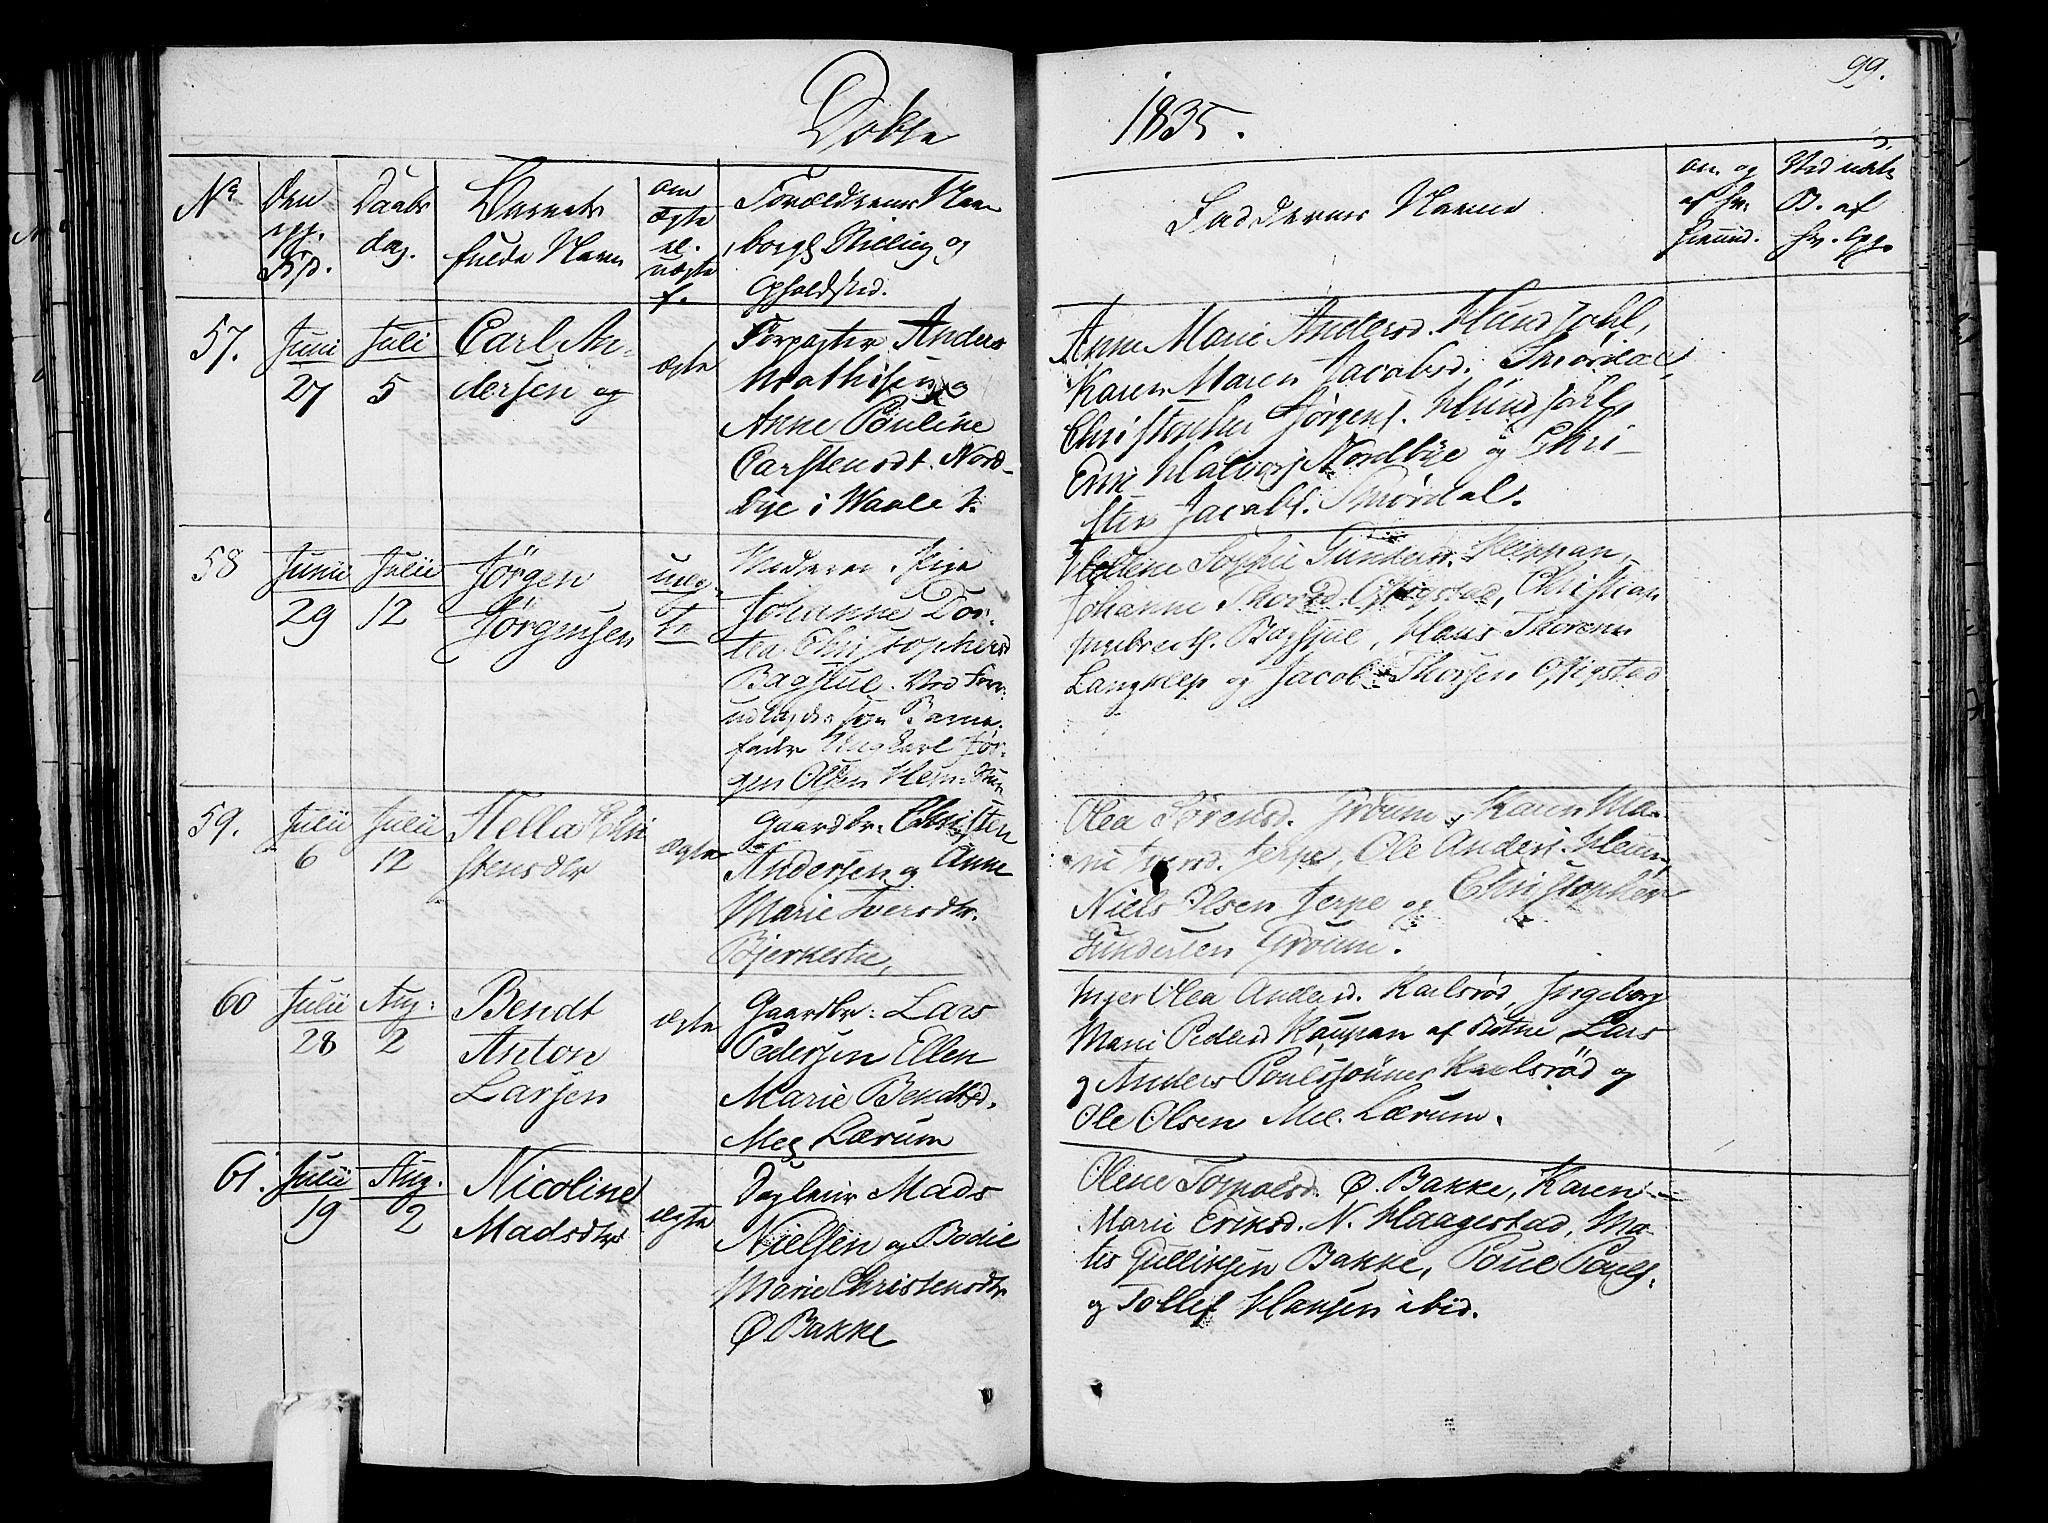 Døbte
1835.
99.
No
Den
Føds.
Daabs
dag.
Barnets
fulde Navn
om
ægte
el.
uægte
f.
Forældrenes Navn
borgl Stilling og
Opholdsted.
Faddernes Navne
57.
Juni
27
Juli
5
Carl An-
dersen og
ægte
Forpagter Anders
Mathisen og
Anne Pouline
Carstensdt. Nord-
bye i Waale
Anne Marie Andersd.
Karen Maren Jacobsd. Smørdal
Christopher Jørgens.
Erik Halvors Nordbye og Chri-
sten Jacobs. Smørdal.
58
Junii
29
Julii
12
Jørgen
Jørgensen
uæg-
te
Moderen: Pige
Johanne Dor-
tea Christophersd
Bagstue.
udlagde som Barne-
fader Ungkarl Jør-
gen Olsen
Hellene Sophie Gundersd. Kleppan,
Johanne Thorsd. Christian
Ingebreths. Bagstue, Hans Thoresen
Langklep og Jacob Thorsen
59.
Julii
6
Julii
12
Hella Chri
stensdtr
ægte
Gaardbr. Christen
Andersen og Anne
Marie Iversdtr.
Bjerkestie,
Olea Sørensd. Karen Ma-
rie Iversd. Jerpe, Ole Anders.
Niels Olsen Jerpe og Christopher
Gundersen
60
Julii
28
Aug:
2
Bendt
Anton
Larsen
ægte
Gaardbr: Lars
Pedersen Ellen
Marie Bendtsd.
Mel Lærum
Inger Olea Andersd. Karlsrød, Ingeborg
Marie Pedersd Kaupan af Botne Lars
og Anders Poulssønner Karlsrød og
Ole Olsen Mel. Lærum.
61.
Julii
19
Aug.
2
Nicoline
Madsdtr
ægte
Dagleier Mads
Nielsen og Bodil
Marie Christensdtr
Ø Bakke
Olene Ø. Bakke, Karen
Marie Eriksd. N. Haagestad, Ma-
tis Gulliksen Bakke, Poul Pouls.
og Tollef Hansen ibid.